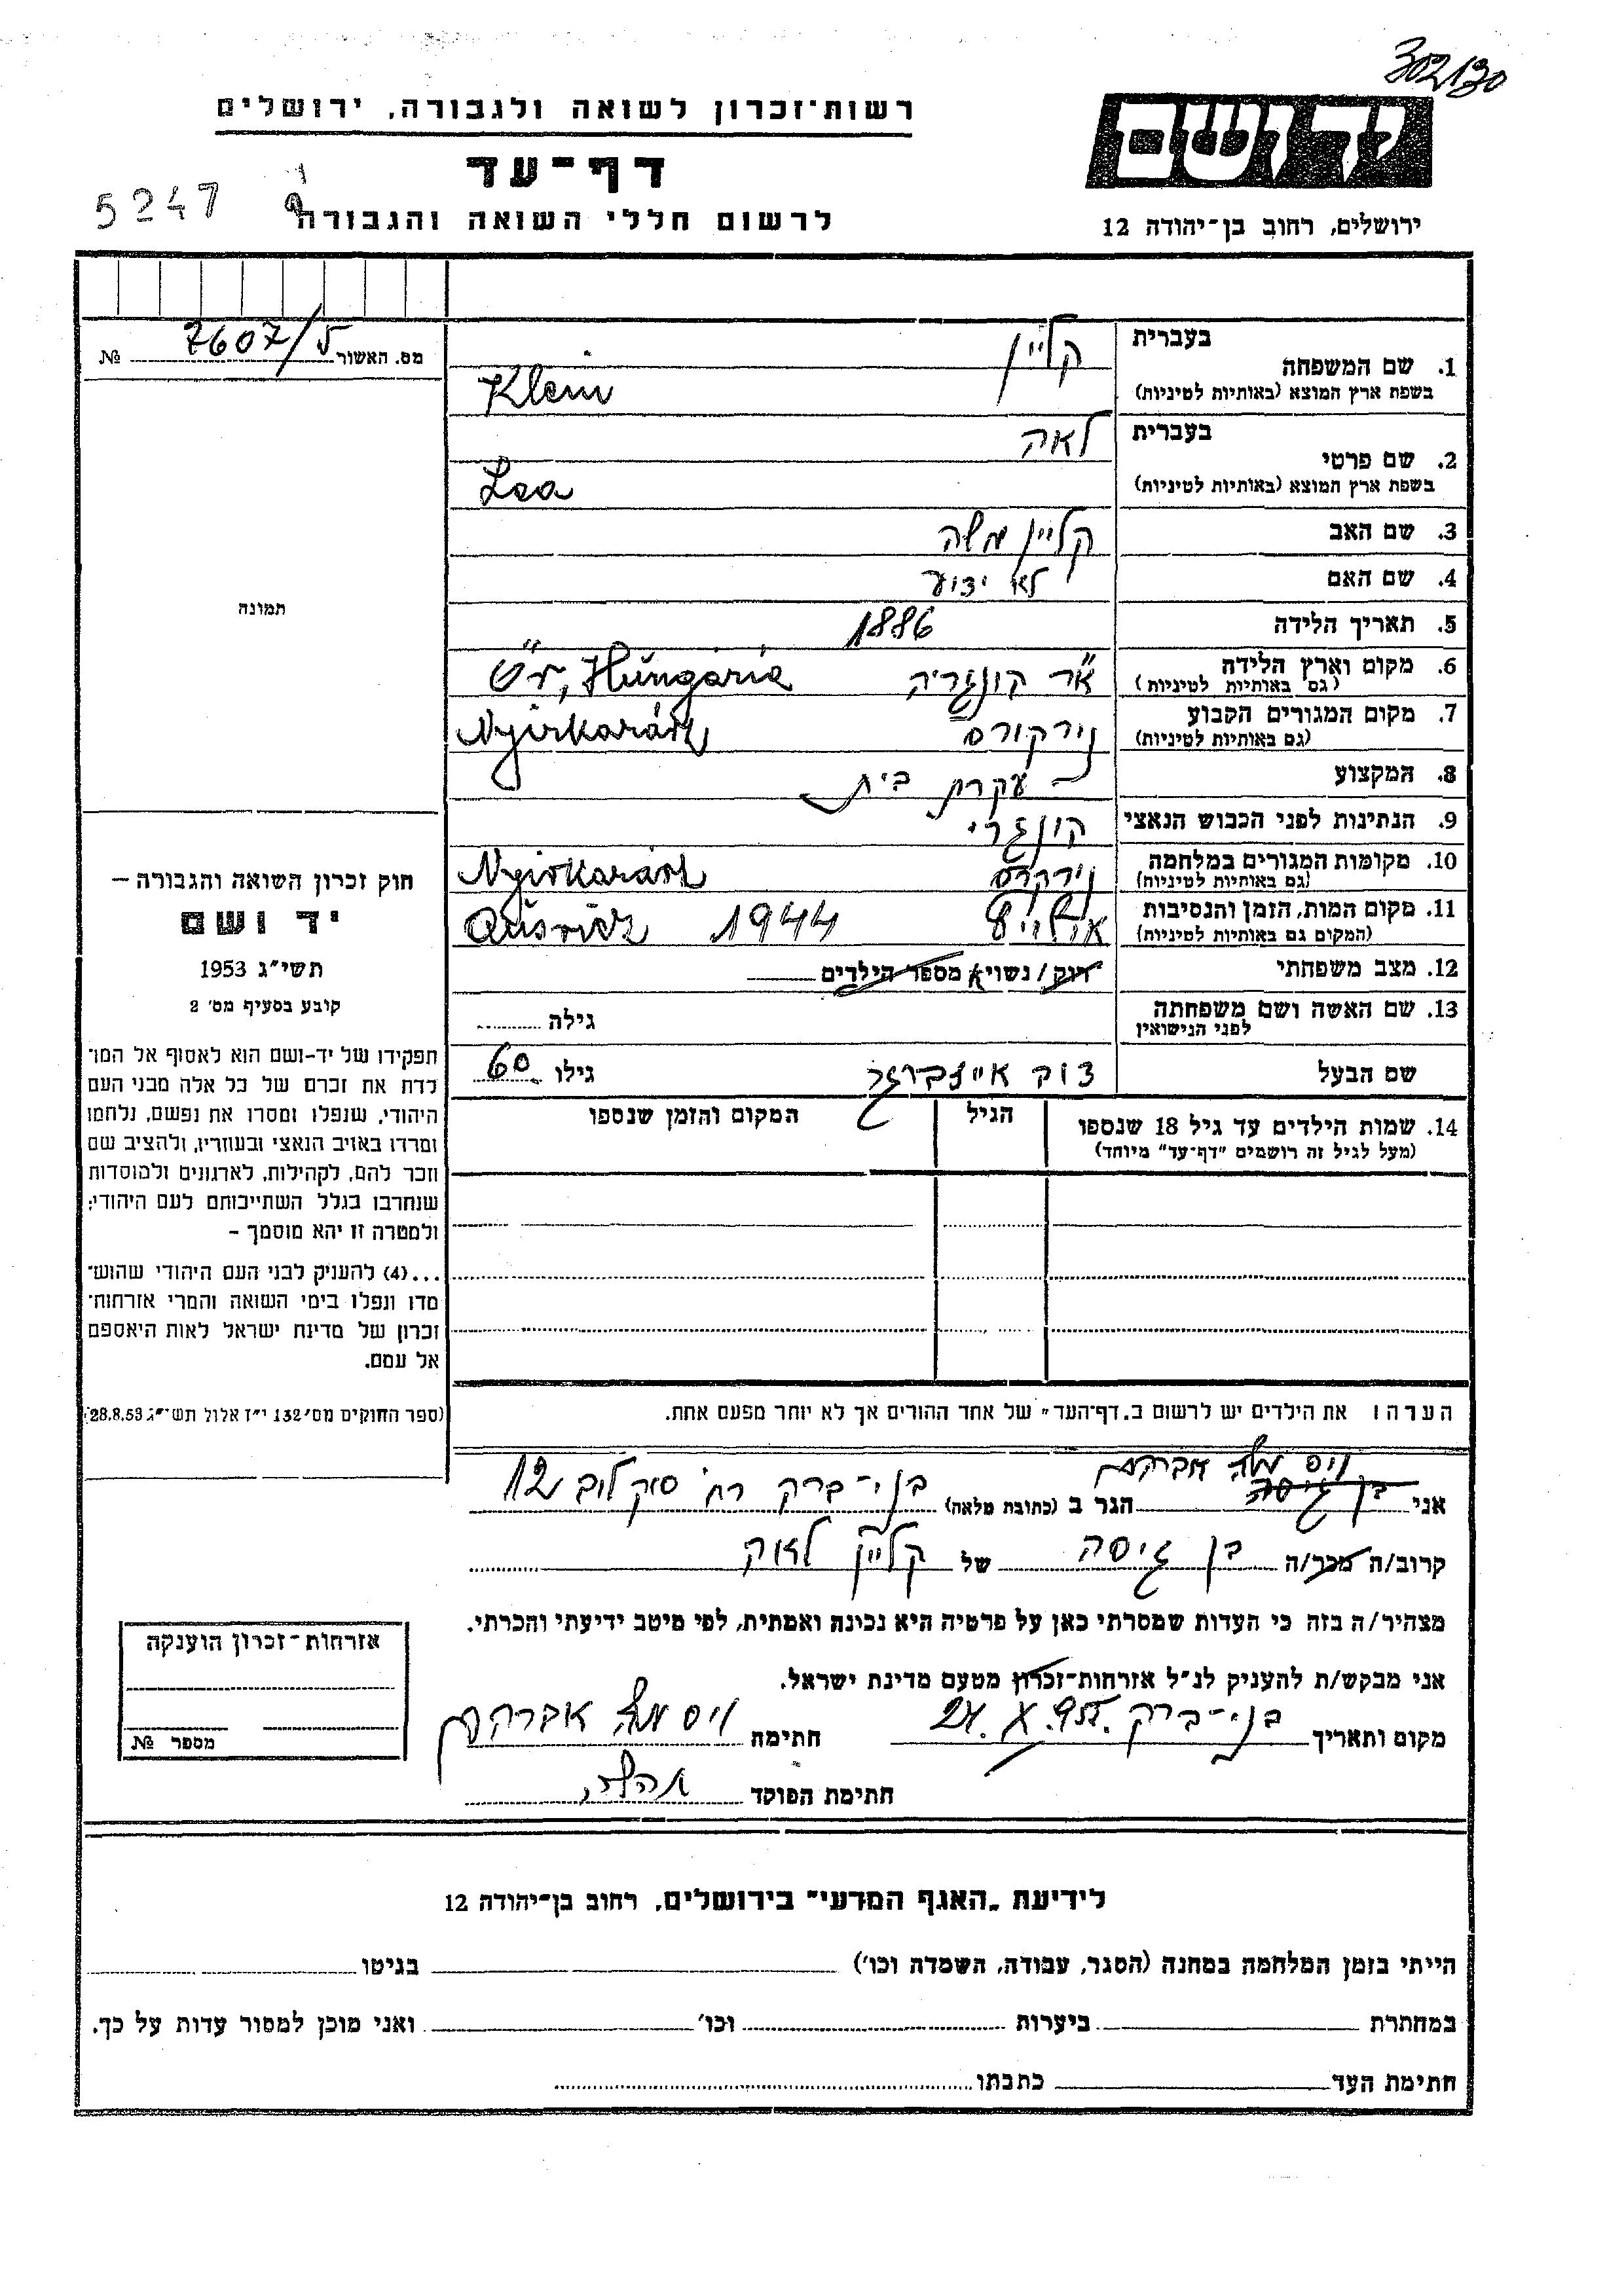 302130
ידושם
ירושלים, רחוב בן־יהודה 12
רשות־זכרון לשואה ולגבורה, ירושלים
דף־עד
לרשום חללי השואה והגבורה
5247
מס. האשור 7607/ №
בעברית
1. שם המשפחה קליין
בשפת ארץ המוצא (באותיות לטיניות) Klein
בעברית
2. שם פרטי לאה
בשפת ארץ המוצא (באותיות לטיניות) Lea
3. שם האב קליין משה
4. שם האם לא ידוע
5. תאריך הלידה 1886
6. מקום וארץ הלידה
(גם באותיות לטיניות) אר הונגריה Őr, Hungária
7. מקום המגורים הקבוע
(גם באותיות לטיניות) נירקורס Nyirkarász
8. המקצוע עקרת בית
9. הנתינות לפני הכבוש הנאצי הונגרי
10. מקומות המגורים במלחמה
(גם באותיות לטיניות) נירקרס Nyirkarász
11. מקום המות, הזמן והנסיבות
(המקום גם באותיות לטיניות) 1944
12. מצב משפחתי רוק/נשוי מספר הילדים
13. שם האשה ושם משפחתה
לפני הנישואין
גילה
שם הבעל גילו 60
14. שמות הילדים עד גיל 18 שנספו
(מעל לגיל זה רושמים "דף־עד" מיוחד)
הגיל
המקום והזמן שנספו
תמונה
חוק זכרון השואה והגבורה —
יד ושם
תשי״ג 1953
קובע בסעיף מס׳ 2
תפקידו של יד־ושם הוא לאסוף אל המו־
לדת את זכרם של כל אלה מבני העם
היהודי, שנפלו ומסרו את נפשם, נלחמו
ומרדו באויב הנאצי ובעוזריו, ולהציב שם
וזכר להם, לקהילות, לארגונים ולמוסדות
שנחרבו בגלל השתייכותם לעם היהודי;
ולמטרה זו יהא מוסמך –
...(4) להעניק לבני העם היהודי שהוש־
מדו ונפלו בימי השואה והמרי אזרחות־
זכרון של מדינת ישראל לאות היאספם
אל עמם.
(ספר החוקים מס׳ 132 י״ז אלול תשי״ג 28.8.53)
הערה: את הילדים יש לרשום ב„דף־העד״ של אחד ההורים אך לא יותר מפעם אחת.
וייס משה אברהם
אני בן גיסה הגר ב (כתובת מלאה) בני-ברק רח׳ סוקולוב 12
קרוב/ה מכר/ה בן גיסה של קליין לאה
מצהיר/ה בזה כי העדות שמסרתי כאן על פרטיה היא נכונה ואמתית, לפי מיטב ידיעתי והכרתי.
אני מבקש/ת להעניק לנ״ל אזרחות־זכרון מטעם מדינת ישראל.
מקום ותאריך בני-ברק חתימה וייס משה אברהם
חתימת הפוקד
אזרחות־זכרון הוענקה
מספר №
לידיעת „האגף המדעי״ בירושלים, רחוב בן־יהודה 12
הייתי בזמן המלחמה במחנה (הסגר, עבודה, השמדה וכו׳) בגיטו
במחתרת ביערות וכו׳ ואני מוכן למסור עדות על כך.
חתימת העד כתבתו